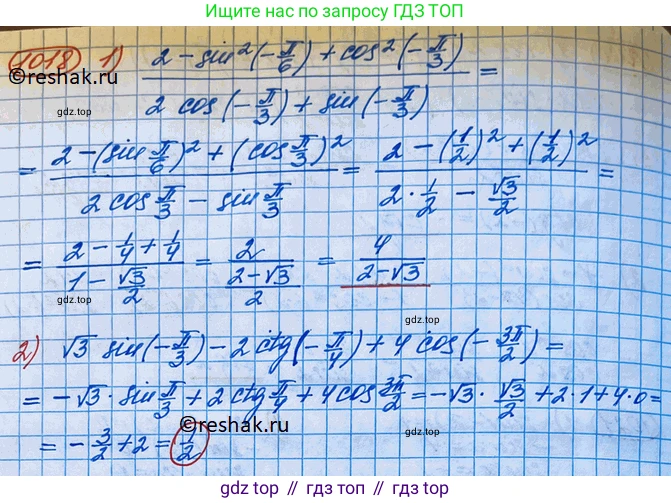 Ищите нас по запросу ГДЗ ТОП
1018 1) (2 - sin²(-π/6) + cos²(-π/3)) / (2 cos(-π/3) + sin(-π/3)) =
©reshak.ru
gdz.top
gdz.top
= (2 - (sin π/6)² + (cos π/3)²) / (2 cos π/3 - sin π/3) = (2 - (1/2)² + (1/2)²) / (2 · 1/2 - √3/2) =
= (2 - 1/4 + 1/4) / (1 - √3/2) = 2 / ((2-√3)/2) = 4 / (2-√3)
gdz.top
gdz.top
2) √3 sin(-π/3) - 2 ctg(-π/4) + 4 cos(-3π/2) =
= -√3 · sin π/3 + 2 ctg π/4 + 4 cos 3π/2 = -√3 · √3/2 + 2·1 + 4·0 =
= - 3/2 + 2 = 1/2
gdz.top
gdz.top
©reshak.ru
gdz топ // гдз топ // гдз.top